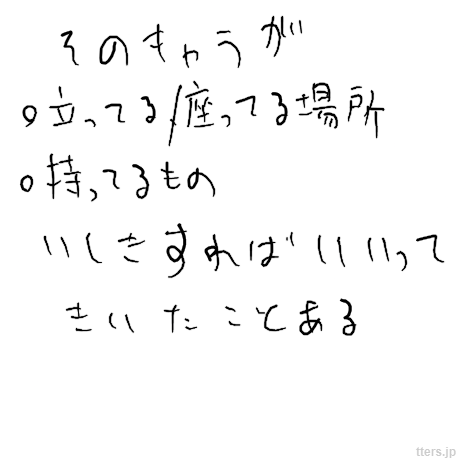 そのキャラが
○立ってる/座ってる場所
○持ってるもの
いしきすればいいって
きいたことある
tters.jp